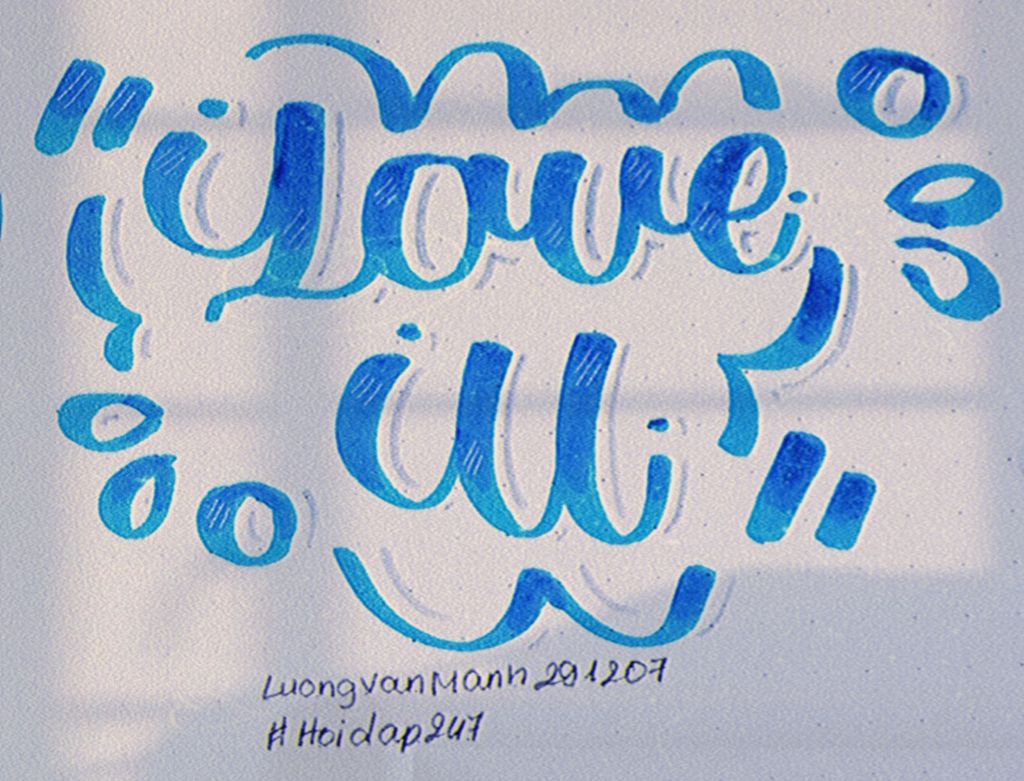 Love
LuongVanManh291207
#Hoidap247